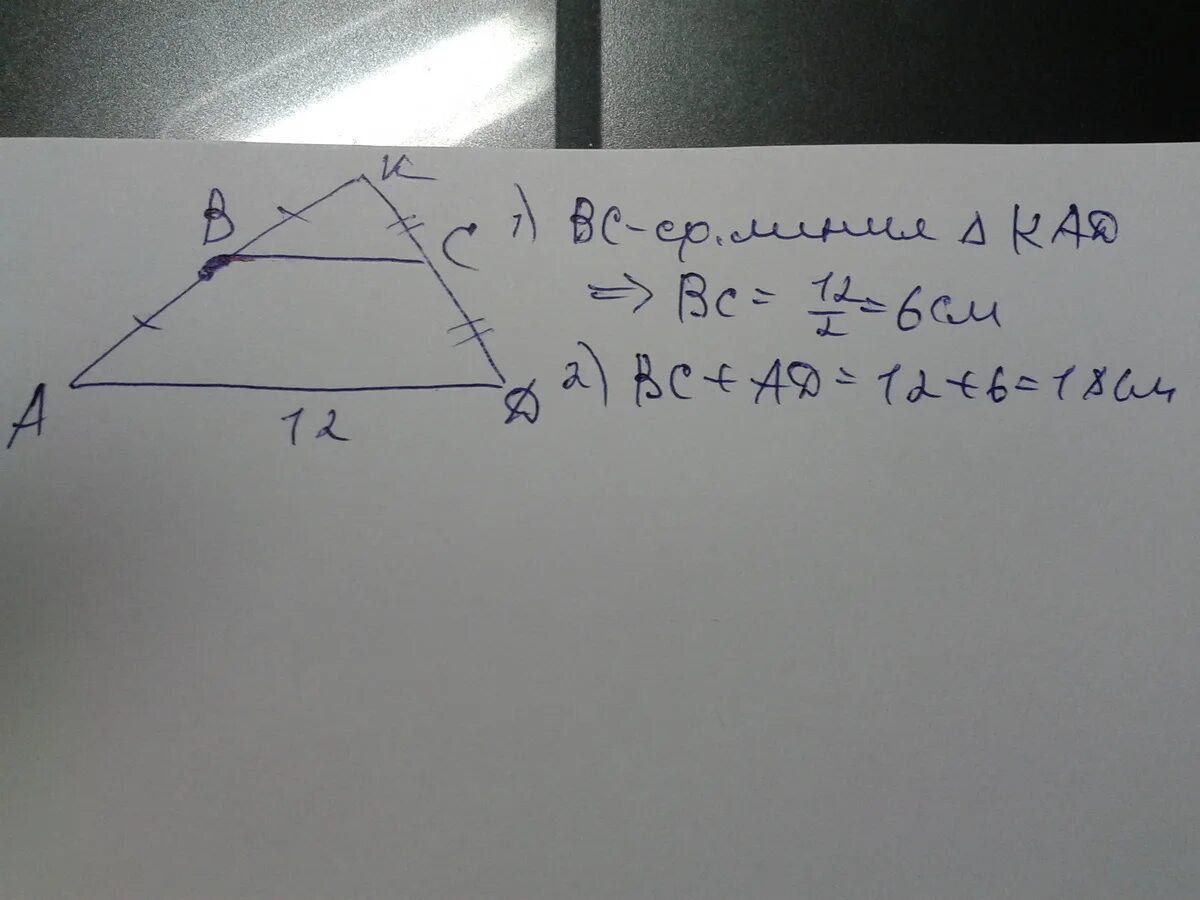 K
B
C
A
12
D
1) BC-ср.линия Δ KAD
⇒ BC = 12/2 = 6см
2) BC + AD = 12 + 6 = 18см